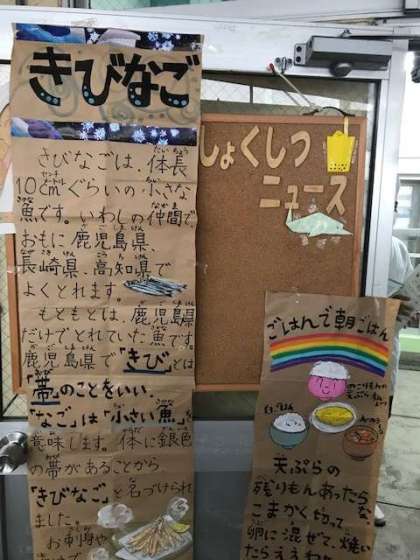 きびなご
きびなごは、体長
10cmぐらいの小さな
魚です。いわしの仲間で、
おもに鹿児島県、
長崎県、高知県で
よくとれます。
もともとは、鹿児島県
だけでとれていた魚です。
鹿児島県で「きび」とは
「帯」のことをいい、
「なご」は「小さい魚」を
意味します。体に銀色
の帯があることから
「きびなご」と名づけられ
ました。
お刺身や
しょくしつ
ニュース
ごはんで朝ごはん
天ぷらの
残りもんあったらな、
こまかく切って、
卵に混ぜて、焼い
たらええ